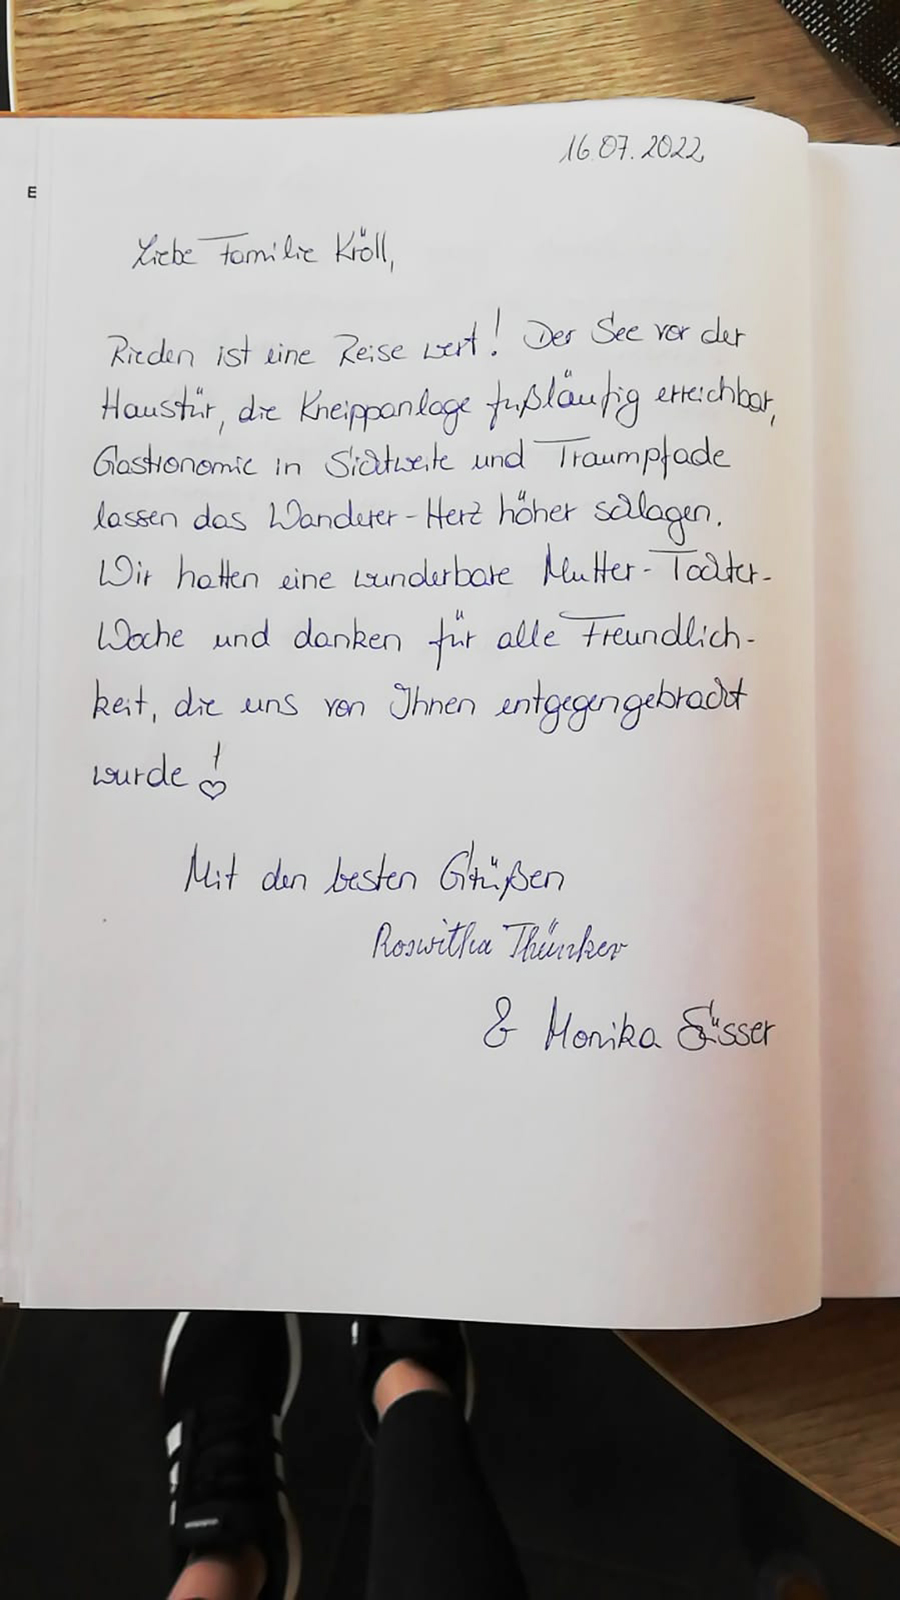 16.07.2022
E
Liebe Familie Kröll,
Rieden ist eine Reise wert! Der See vor der
Haustür, die Kneippanlage fußläufig erreichbar,
Gastronomie in Sichtweite und Traumpfade
lassen das Wanderer-Herz höher schlagen.
Wir hatten eine wunderbare Mutter-Tochter-
Woche und danken für alle Freundlich-
keit, die uns von Ihnen entgegengebracht
wurde!
Mit den besten Grüßen
Roswitha Thünker
& Monika Süsser